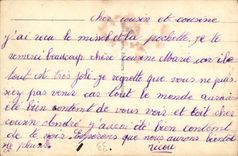 cher cousin et cousine
j'ai recu le minot et la pochette je te
remerci beaucoup chère cousine Marie, car il
tout est très joli. je regrette que vous ne puis
siez pas venir car tout le monde aurais
été bien content de vous voir et toit cher
cousin André j'aurai été bien content
de te voir. Esperons que nous aurons bientot
ce plaisir.